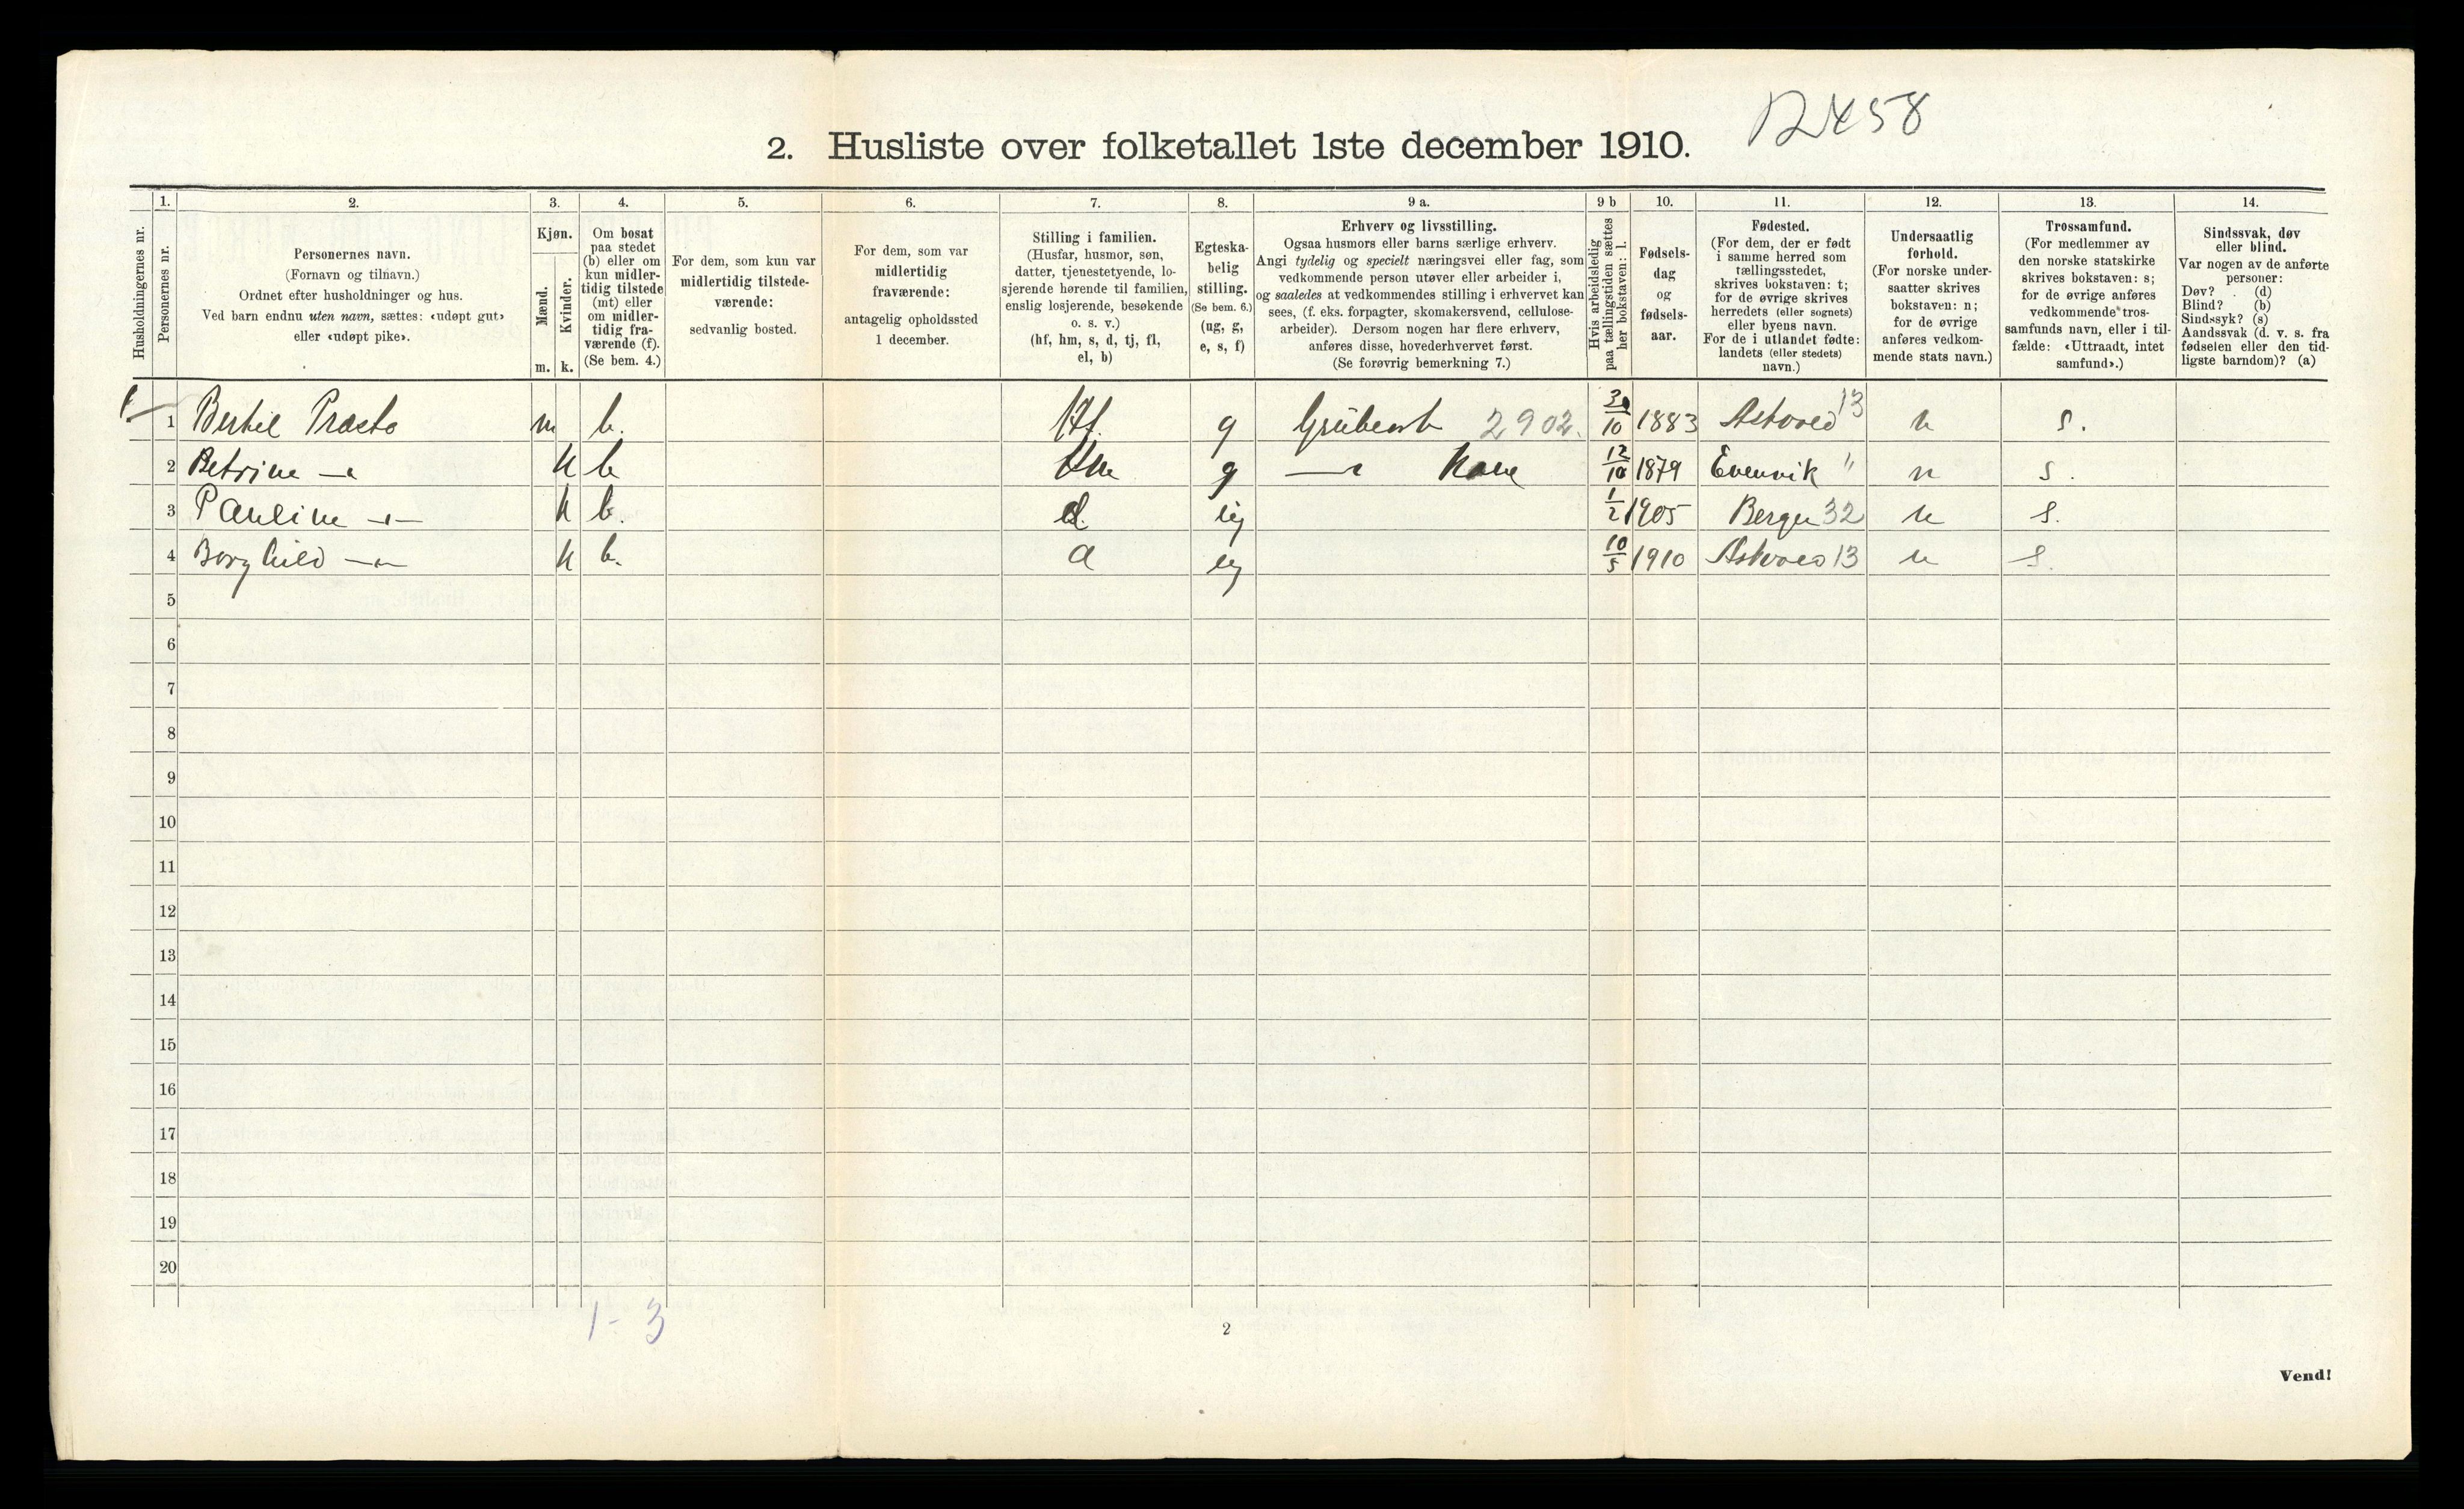 12458
2. Husliste over folketallet 1ste december 1910.
Husholdningernes nr.
1.
Personernes nr.
2.
Personernes navn.
(Fornavn og tilnavn.)
Ordnet efter husholdninger og hus.
Ved barn endnu uten navn, sættes: «udøpt gut»
eller «udøpt pike».
3.
Kjøn.
Mænd.
Kvinder.
m. k.
4.
Om bosat
paa stedet
(b) eller om
kun midler-
tidig tilstede
(mt) eller
om midler-
tidig fra-
værende (f).
(Se bem. 4.)
5.
For dem, som kun var
midlertidig tilstede-
værende:
sedvanlig bosted.
6.
For dem, som var
midlertidig
fraværende:
antagelig opholdssted
1 december.
7.
Stilling i familien.
(Husfar, husmor, søn,
datter, tjenestetyende, lo-
sjerende hørende til familien,
enslig losjerende, besøkende
o. s. v.)
(hf, hm, s, d, tj, fl,
el, b)
8.
Egteska-
belig
stilling.
(Se bem. 6.)
(ug, g,
e, s, f)
9 a.
Erhverv og livsstilling.
Ogsaa husmors eller barns særlige erhverv.
Angi tydelig og specielt næringsvei eller fag, som
vedkommende person utøver eller arbeider i,
og saaledes at vedkommendes stilling i erhvervet kan
sees, (f. eks. forpagter, skomakersvend, cellulose-
arbeider). Dersom nogen har flere erhverv,
anføres disse, hovederhvervet først.
(Se forøvrig bemerkning 7.)
9 b
Hvis arbeidsledig
paa tællingstiden sættes
her bokstaven: l.
10.
Fødsels-
dag
og
fødsels-
aar.
11.
Fødested.
(For dem, der er født
i samme herred som
tællingsstedet,
skrives bokstaven: t;
for de øvrige skrives
herredets (eller sognets)
eller byens navn.
For de i utlandet fødte:
landets (eller stedets)
navn.)
12.
Undersaatlig
forhold.
(For norske under-
saatter skrives
bokstaven: n;
for de øvrige
anføres vedkom-
mende stats navn.)
13.
Trossamfund.
(For medlemmer av
den norske statskirke
skrives bokstaven: s;
for de øvrige anføres
vedkommende tros-
samfunds navn, eller i til-
fælde: «Uttraadt, intet
samfund».)
14.
Sindssvak, døv
eller blind.
Var nogen av de anførte
personer:
Døv? . (d)
Blind? (b)
Sindssyk? (s)
Aandssvak (d. v. s. fra
fødselen eller den tid-
ligste barndom)? (a)
1 1 Bertil Præsto m b. Hf. g Grubearb 2902. 30/10 1883 Askvold 13 n s.
2 Petrine —"— k b Hm g —"— Kone 12/10 1879 Evenvik " n s.
3 Pauline —"— k b. d. ug 1/2 1905 Bergen 32 n s.
4 Borghild —"— k b. d ug 10/5 1910 Askvold 13 n s.
5
6
7
8
9
10
11
12
13
14
15
16
17
18
19
20
1 - 3
2
Vend!